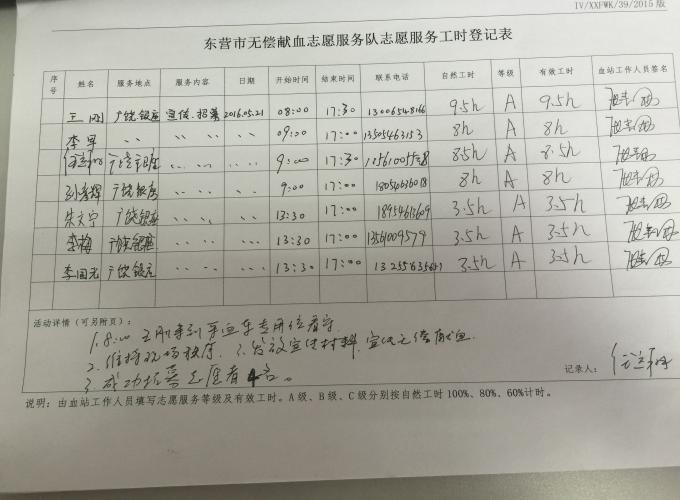 IV/XXFWK/39/2015版
东营市无偿献血志愿服务队志愿服务工时登记表
序号 姓名 服务地点 服务内容 日期 开始时间 结束时间 联系电话 自然工时 等级 有效工时 血站工作人员签名
王刚 广饶银座 宣传、招募 2016.05.21 08:00 17:30 13006548166 9.5h A 9.5h
李军 〃 〃 〃 09:00 17:00 13505463153 8h A 8h
9:00 17:30 8.5h A 8.5h
广饶银座 9:00 17:00 18050636018 8h A 8h
朱文宁 广饶银座 13:30 17:00 18954613609 3.5h A 3.5h
李梅 广饶银座 13:30 17:00 13561009579 3.5h A 3.5h
李国光 广饶银座 13:30 17:00 3.5h A 3.5h
活动详情（可另附页）：
1. 8:00 王刚等到采血车专用位看守
2. 维持现场秩序、3. 发放宣传材料，宣传无偿献血
3. 成功招募志愿者4名。
记录人：
说明：由血站工作人员填写志愿服务等级及有效工时。A级、B级、C级分别按自然工时100%、80%、60%计时。